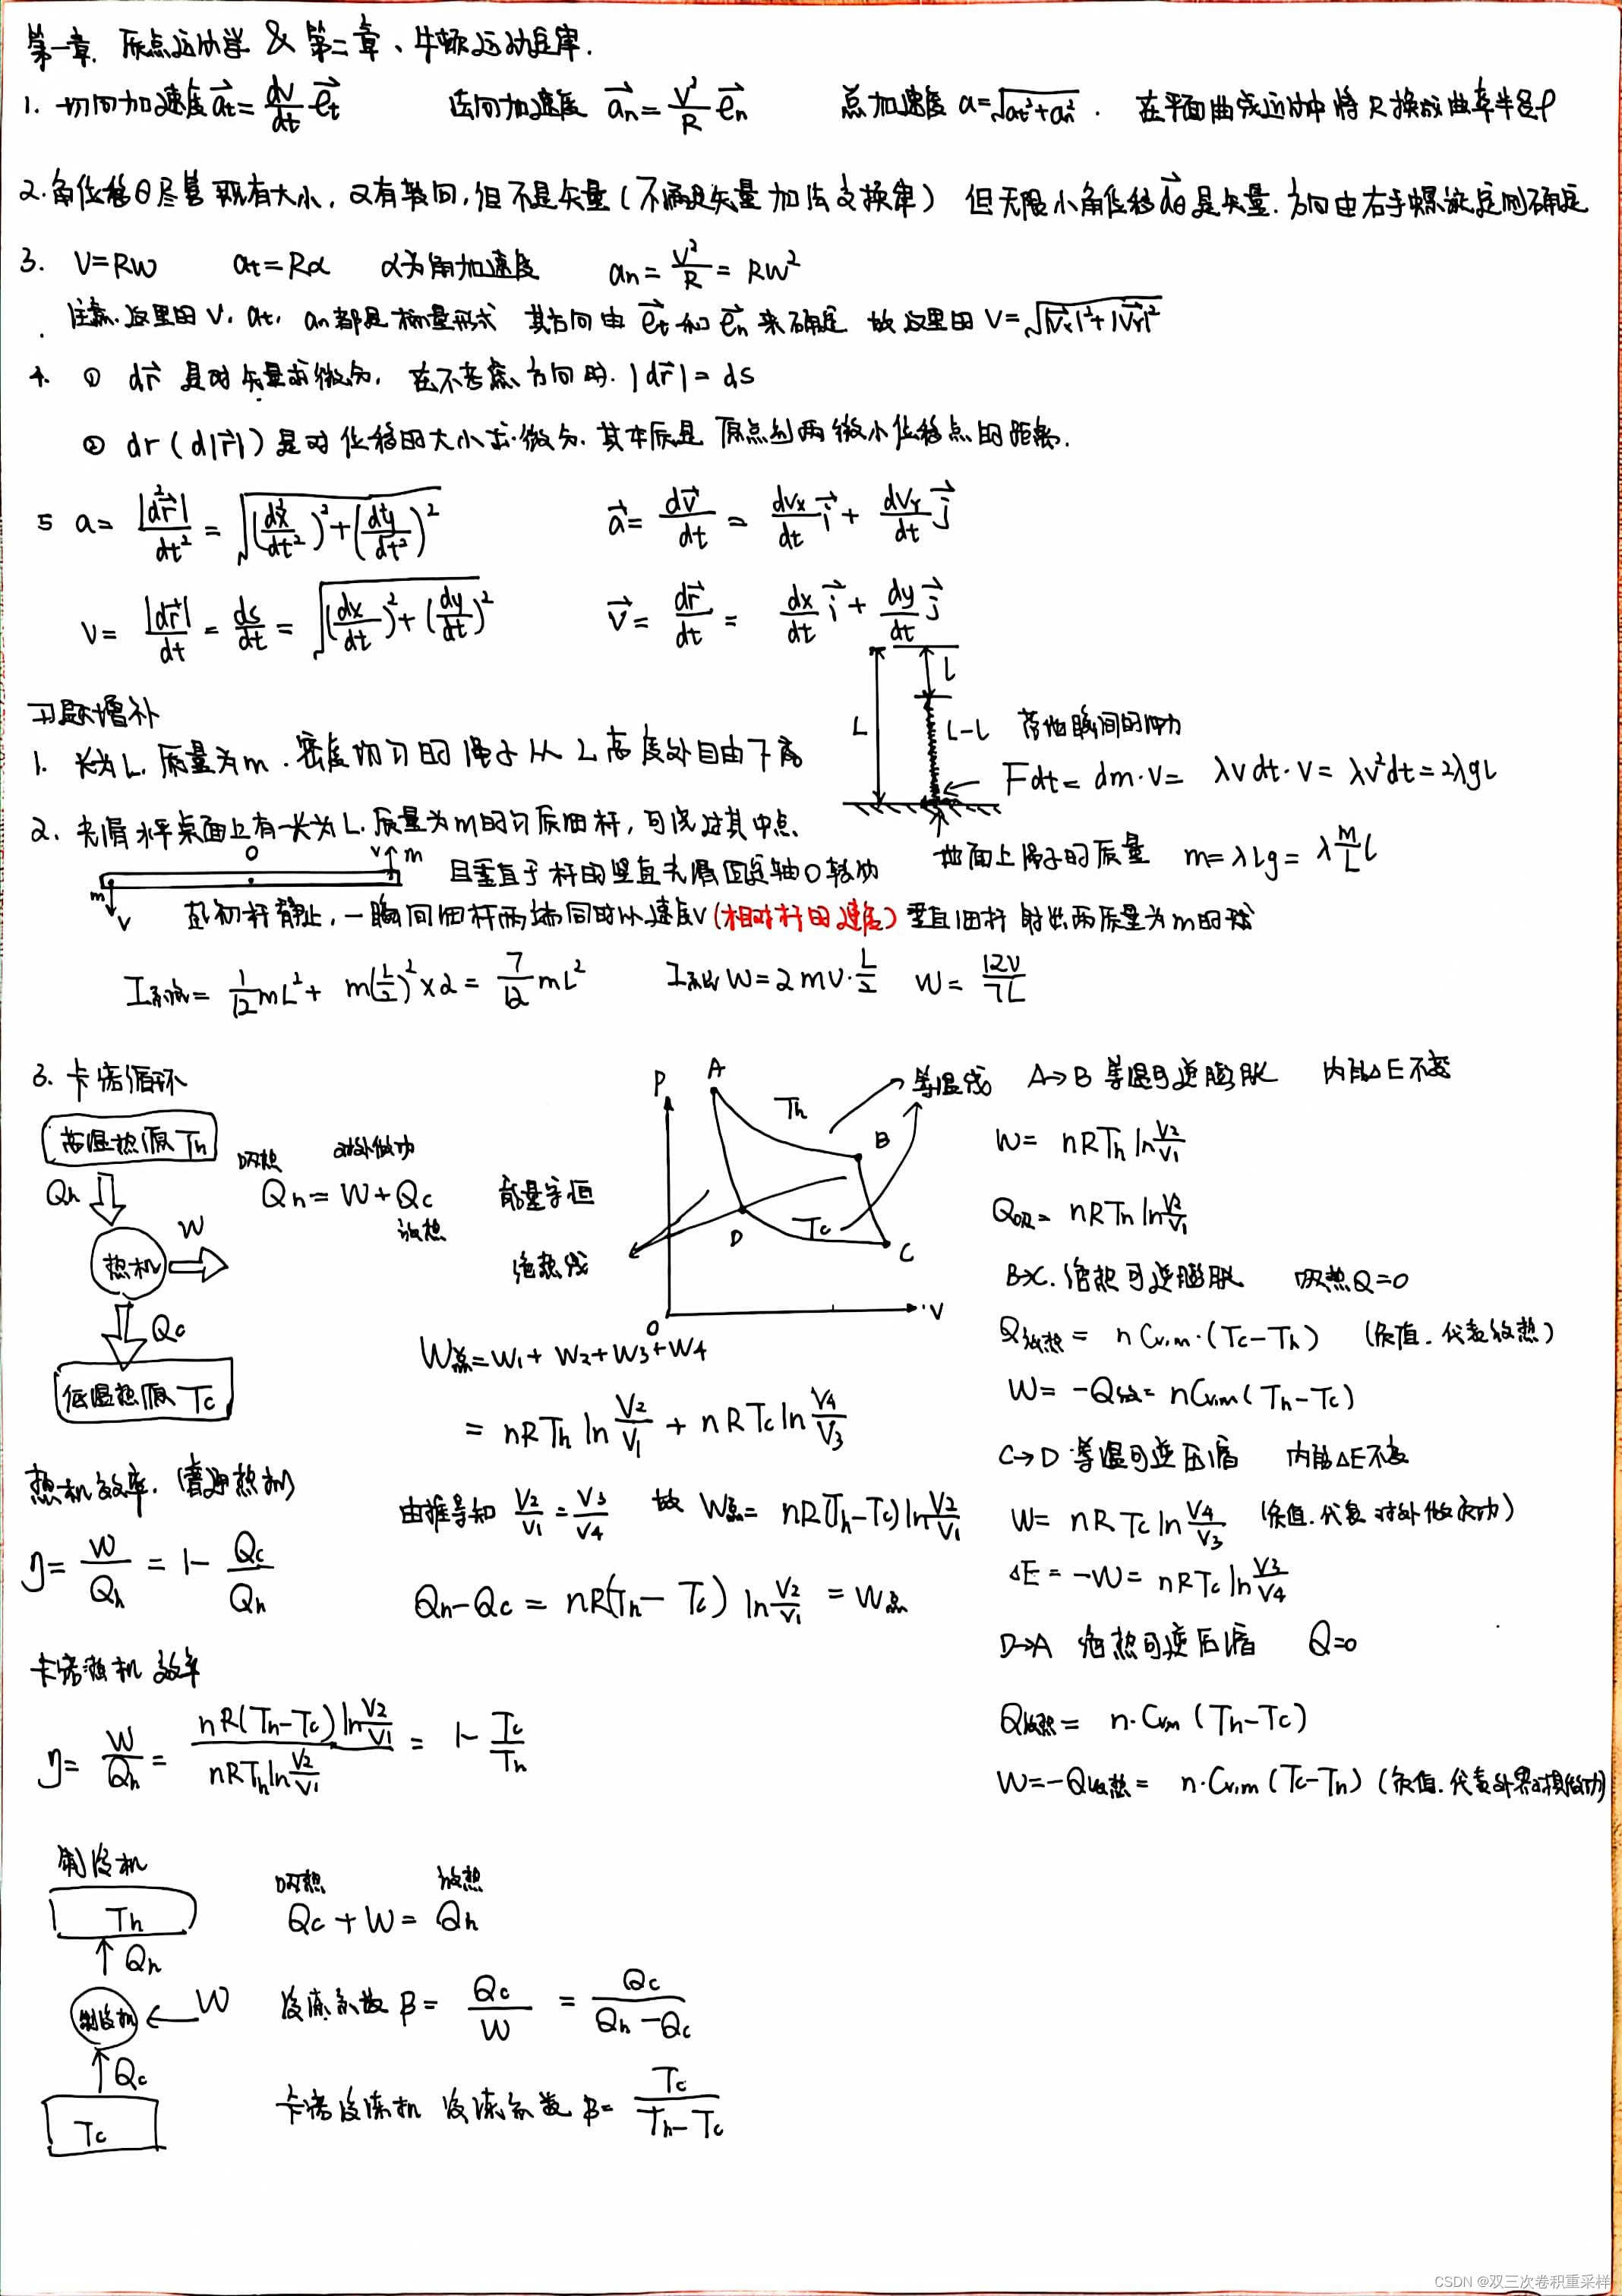 第一章. 质点运动学 & 第二章、牛顿运动定律.
1. 切向加速度 a⃗t = dv/dt e⃗t 法向加速度 a⃗n = v²/R e⃗n 总加速度 a=√(at²+an²). 在平面曲线运动中将R换成曲率半径ρ
2. 角位移θ尽管既有大小, 又有转向, 但不是矢量 (不满足矢量加法交换律) 但无限小角位移dθ⃗是矢量. 方向由右手螺旋定则确定
3. V=Rω at=Rα α为角加速度 an = v²/R = Rω²
注意. 这里的 V. at. an 都是标量形式 其方向由 e⃗t 和 e⃗n 来确定 故这里的 V=√(|V⃗x|²+|V⃗y|²)
4. ① dr⃗ 是对矢量求微分, 在不考虑方向时. |dr⃗| = ds
② dr (d|r⃗|) 是对位移的大小求微分. 其本质是 原点到两微小位移点的距离.
5 a= |d²r⃗|/dt² = √((d²x/dt²)²+(d²y/dt²)²) a⃗= dv⃗/dt = dvx/dt i⃗ + dvy/dt j⃗
V= |dr⃗|/dt = ds/dt = √((dx/dt)²+(dy/dt)²) v⃗= dr⃗/dt = dx/dt i⃗ + dy/dt j⃗
习题增补
1. 长为L. 质量为m. 密度均匀的绳子从L高度处自由下落
L l L-l 落地瞬间的冲力
Fdt = dm·v = λvdt·v = λv²dt = 2λgl
地面上绳子的质量 m=λlg= λ M/L l
2. 光滑水平桌面上有一长为L. 质量为m的匀质细杆, 可绕过其中点.
O v m m v
且垂直于杆的竖直光滑固定轴O转动
起初杆静止, 一瞬间细杆两端同时以速度v (相对杆的速度) 垂直细杆射出两质量为m的球
I系统= 1/12 mL² + m(L/2)²×2 = 7/12 mL² I系统 ω=2mv·L/2 ω= 12v/7L
3. 卡诺循环
高温热源 Th
Qh
热机
W
Qc
低温热源 Tc
吸热 对外做功
Qh = W + Qc 能量守恒
放热
绝热线
P A Th B D Tc C O V
等温线
A→B 等温可逆膨胀 内能ΔE不变
W= nRTh ln V2/V1
Q吸= nRTh ln V2/V1
B→C. 绝热可逆膨胀 吸热Q=0
Q放热 = n Cv,m·(Tc-Th) (负值. 代表放热)
W= -Q放= nCv,m(Th-Tc)
C→D 等温可逆压缩 内能ΔE不变
W= nRTc ln V4/V3 (负值. 代表对外做负功)
ΔE = -W = nRTc ln V3/V4
D→A 绝热可逆压缩 Q=0
Q放热= n·Cv,m (Th-Tc)
W=-Q放热= n·Cv,m (Tc-Th) (负值. 代表外界对其做功)
W总=W1+W2+W3+W4
= nRTh ln V2/V1 + nRTc ln V4/V3
由推导知 V2/V1 = V3/V4 故 W总= nR(Th-Tc) ln V2/V1
Qh-Qc = nR(Th-Tc) ln V2/V1 = W总
热机效率. (普通热机)
η= W/Qh = 1- Qc/Qh
卡诺热机效率
η= W/Qh = nR(Th-Tc) ln V2/V1 / nRTh ln V2/V1 = 1- Tc/Th
制冷机
Th
Qh
制冷机
W
Qc
Tc
吸热 放热
Qc + W = Qh
冷冻系数 β= Qc/W = Qc/(Qh-Qc)
卡诺冷冻机 冷冻系数 β= Tc/(Th-Tc)
CSDN @双三次卷积重采样